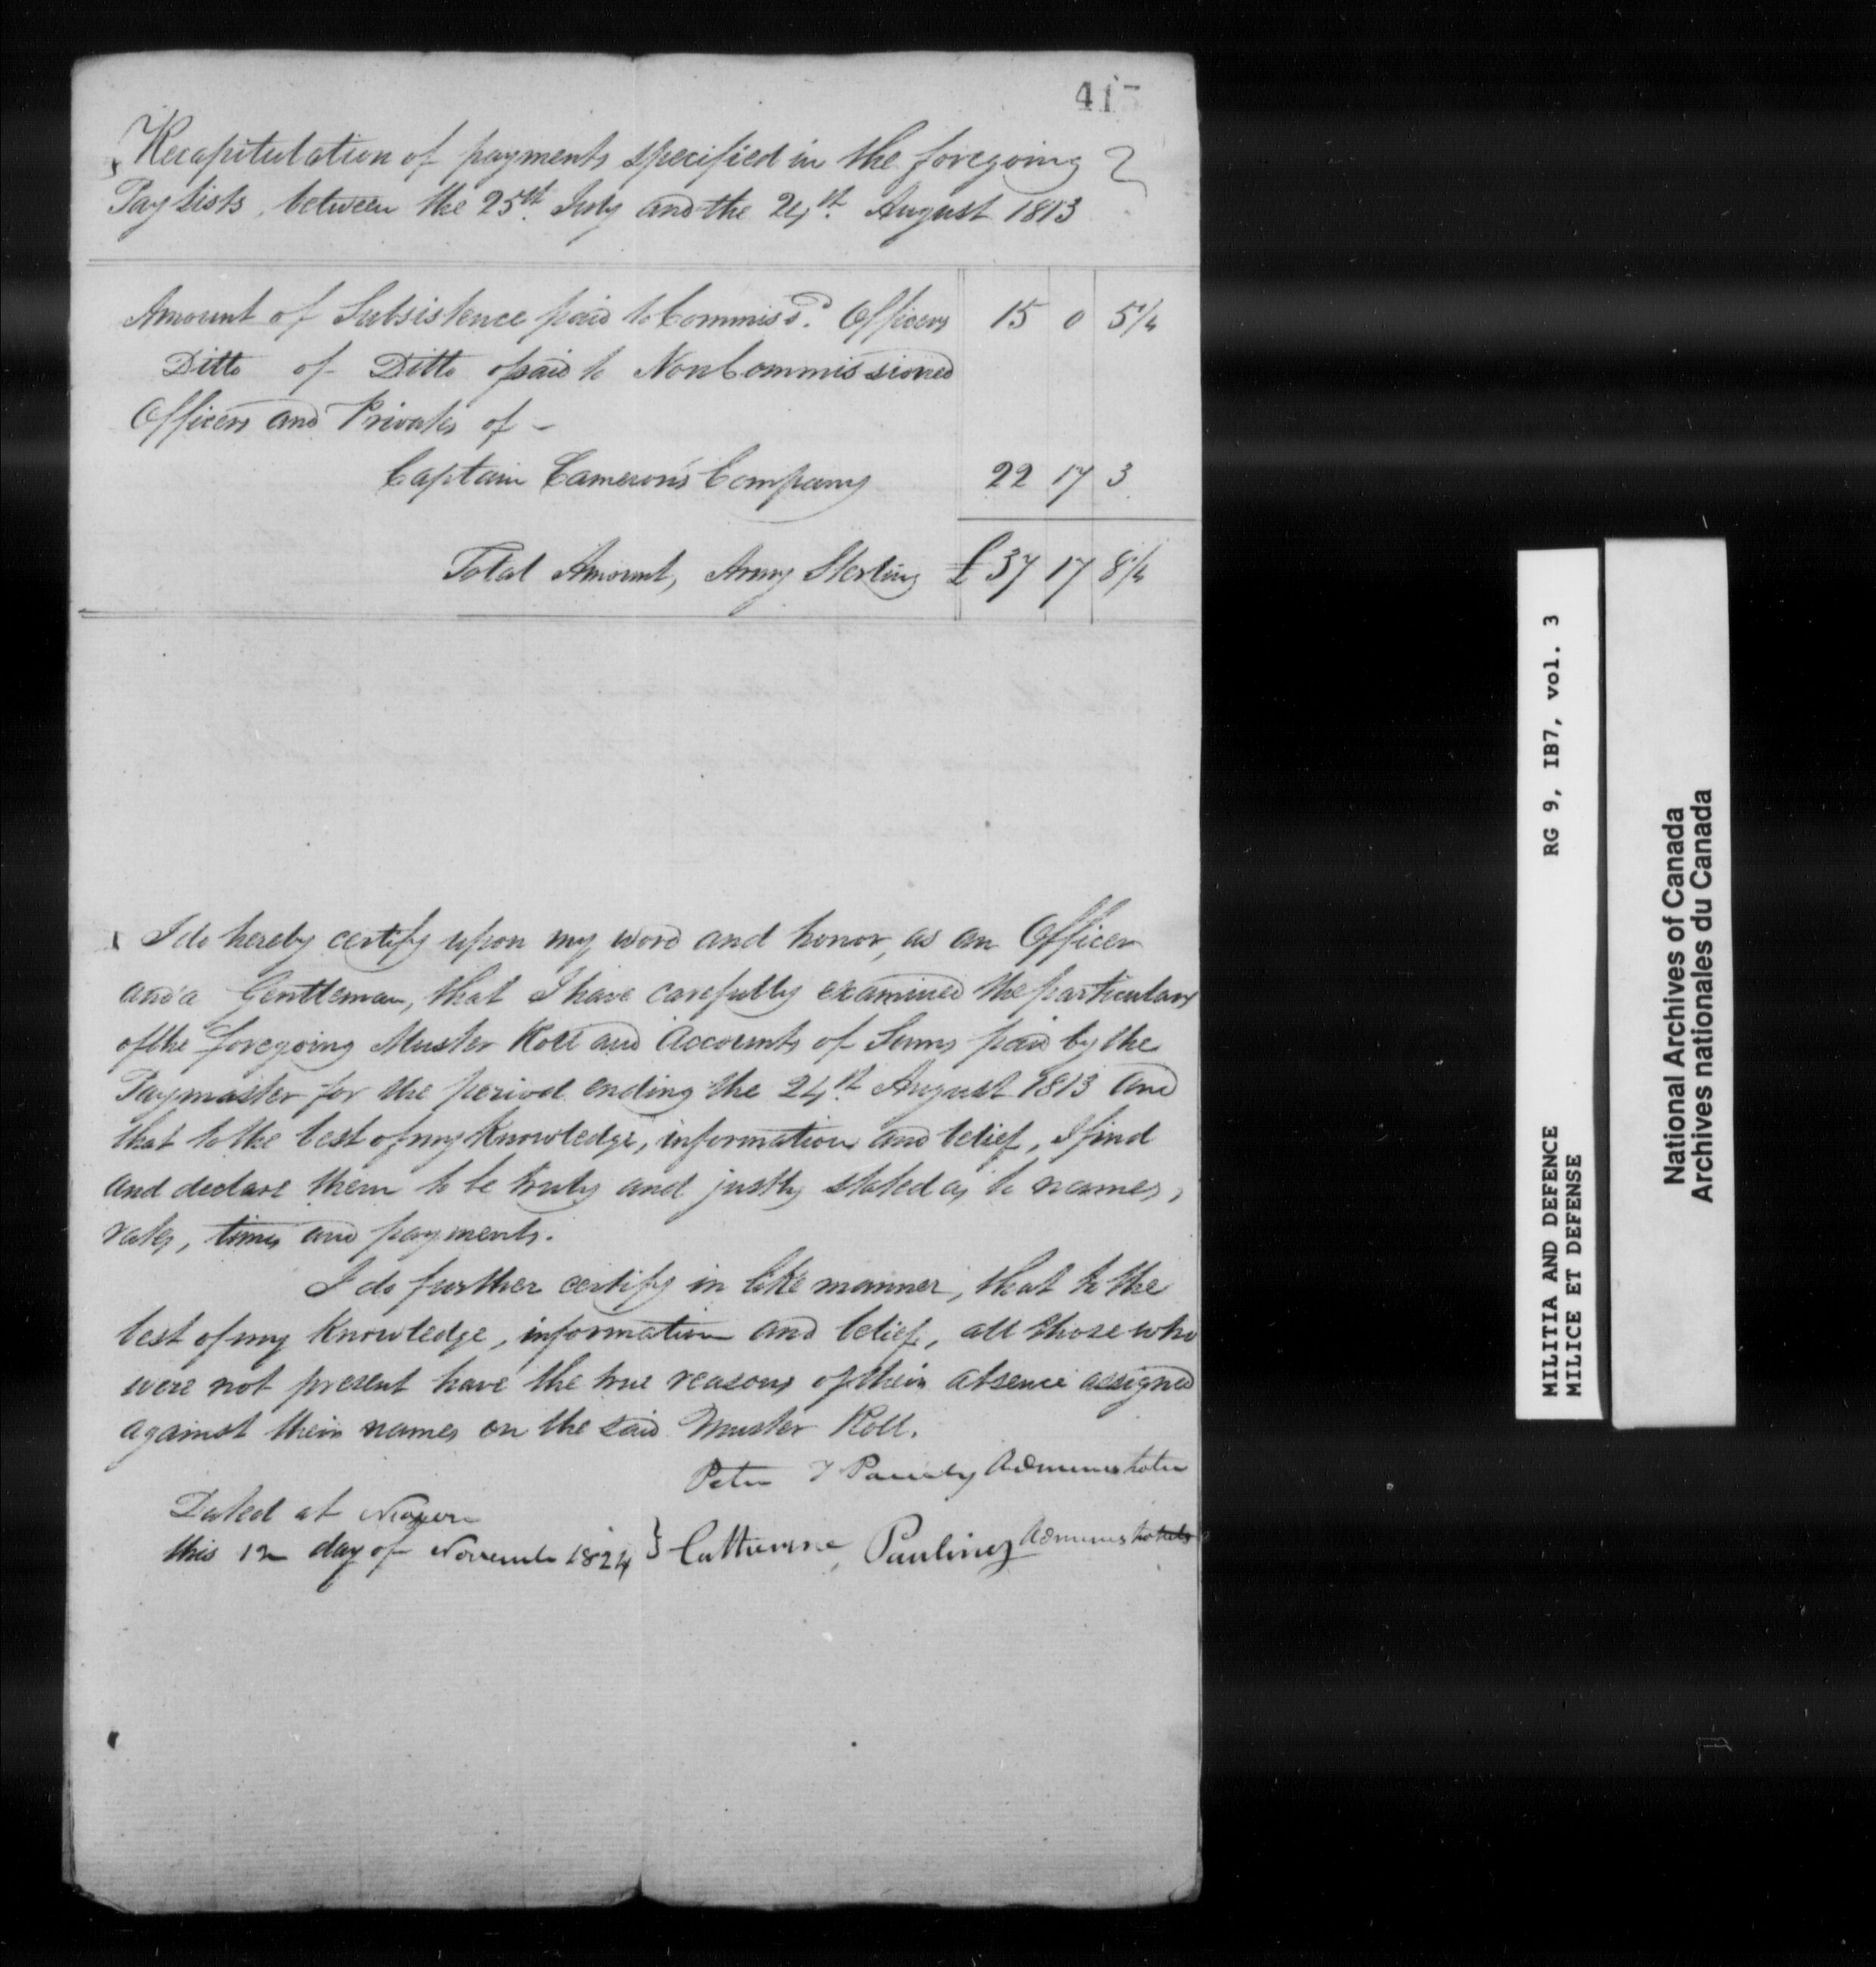 41
Recapitulation of payments specified in the foregoing
Pay Lists, between the 25th July and the 24th August 1813
Amount of Subsistence paid to Commiss'd. Officers 15 0 5 1/4
Ditto of Ditto paid to Non Commissioned
Officers and Privates of -
Captain Cameron's Company 22 17 3
Total Amount, Army Sterling £ 37 17 8 1/4
I do hereby certify upon my word and honor, as an Officer
and a Gentleman, that I have carefully examined the particulars
of the foregoing Muster Roll and Accounts of Sums paid by the
Paymaster for the period ending the 24th August 1813 and
that to the best of my Knowledge, information and belief, I find
and declare them to be truly and justly stated as to names,
rates, times and payments.
I do further certify in like manner, that to the
best of my Knowledge, information and belief, all those who
were not present have the true reasons of their absence assigned
against their names on the said Muster Roll.
Peter Administrator
Dated at
this 12 day of November 1824 } Catherine Pauling
MILITIA AND DEFENCE RG 9, IB7, vol. 3
MILICE ET DEFENSE
National Archives of Canada
Archives nationales du Canada